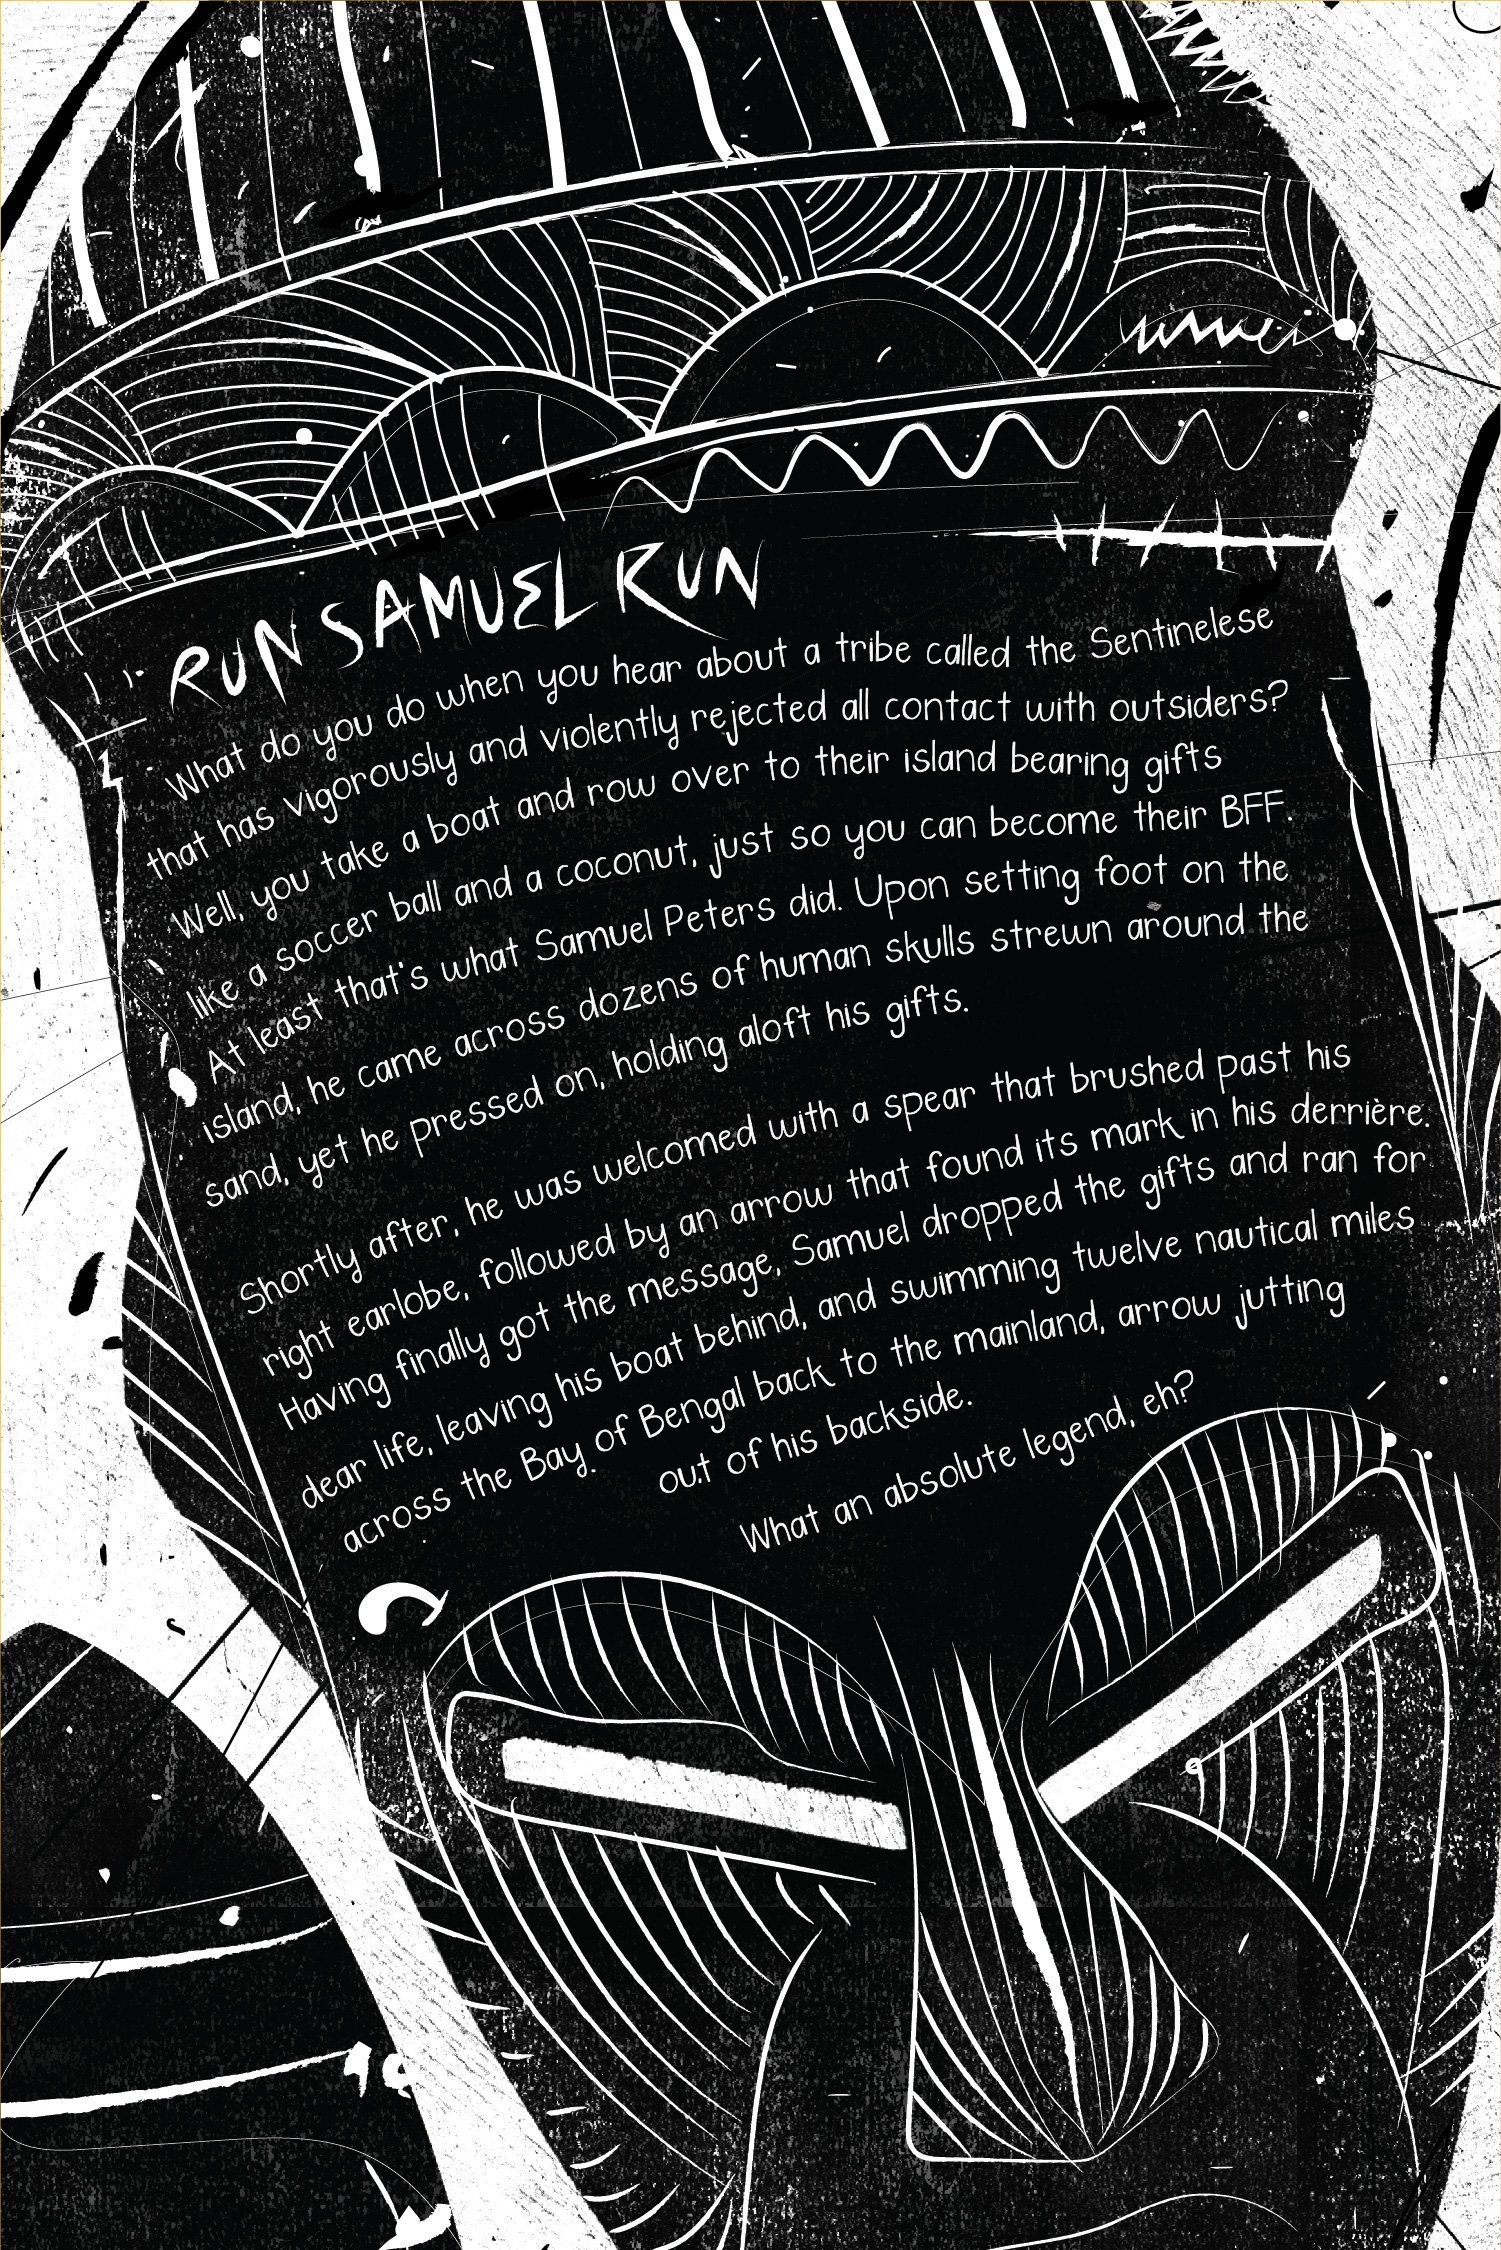 RUN SAMUEL RUN
What do you do when you hear about a tribe called the Sentinelese
that has vigorously and violently rejected all contact with outsiders?
Well, you take a boat and row over to their island bearing gifts
like a soccer ball and a coconut, just so you can become their BFF.
At least that's what Samuel Peters did. Upon setting foot on the
island, he came across dozens of human skulls strewn around the
sand, yet he pressed on, holding aloft his gifts.
Shortly after, he was welcomed with a spear that brushed past his
right earlobe, followed by an arrow that found its mark in his derrière.
Having finally got the message, Samuel dropped the gifts and ran for
dear life, leaving his boat behind, and swimming twelve nautical miles
across the Bay of Bengal back to the mainland, arrow jutting
out of his backside.
What an absolute legend, eh?